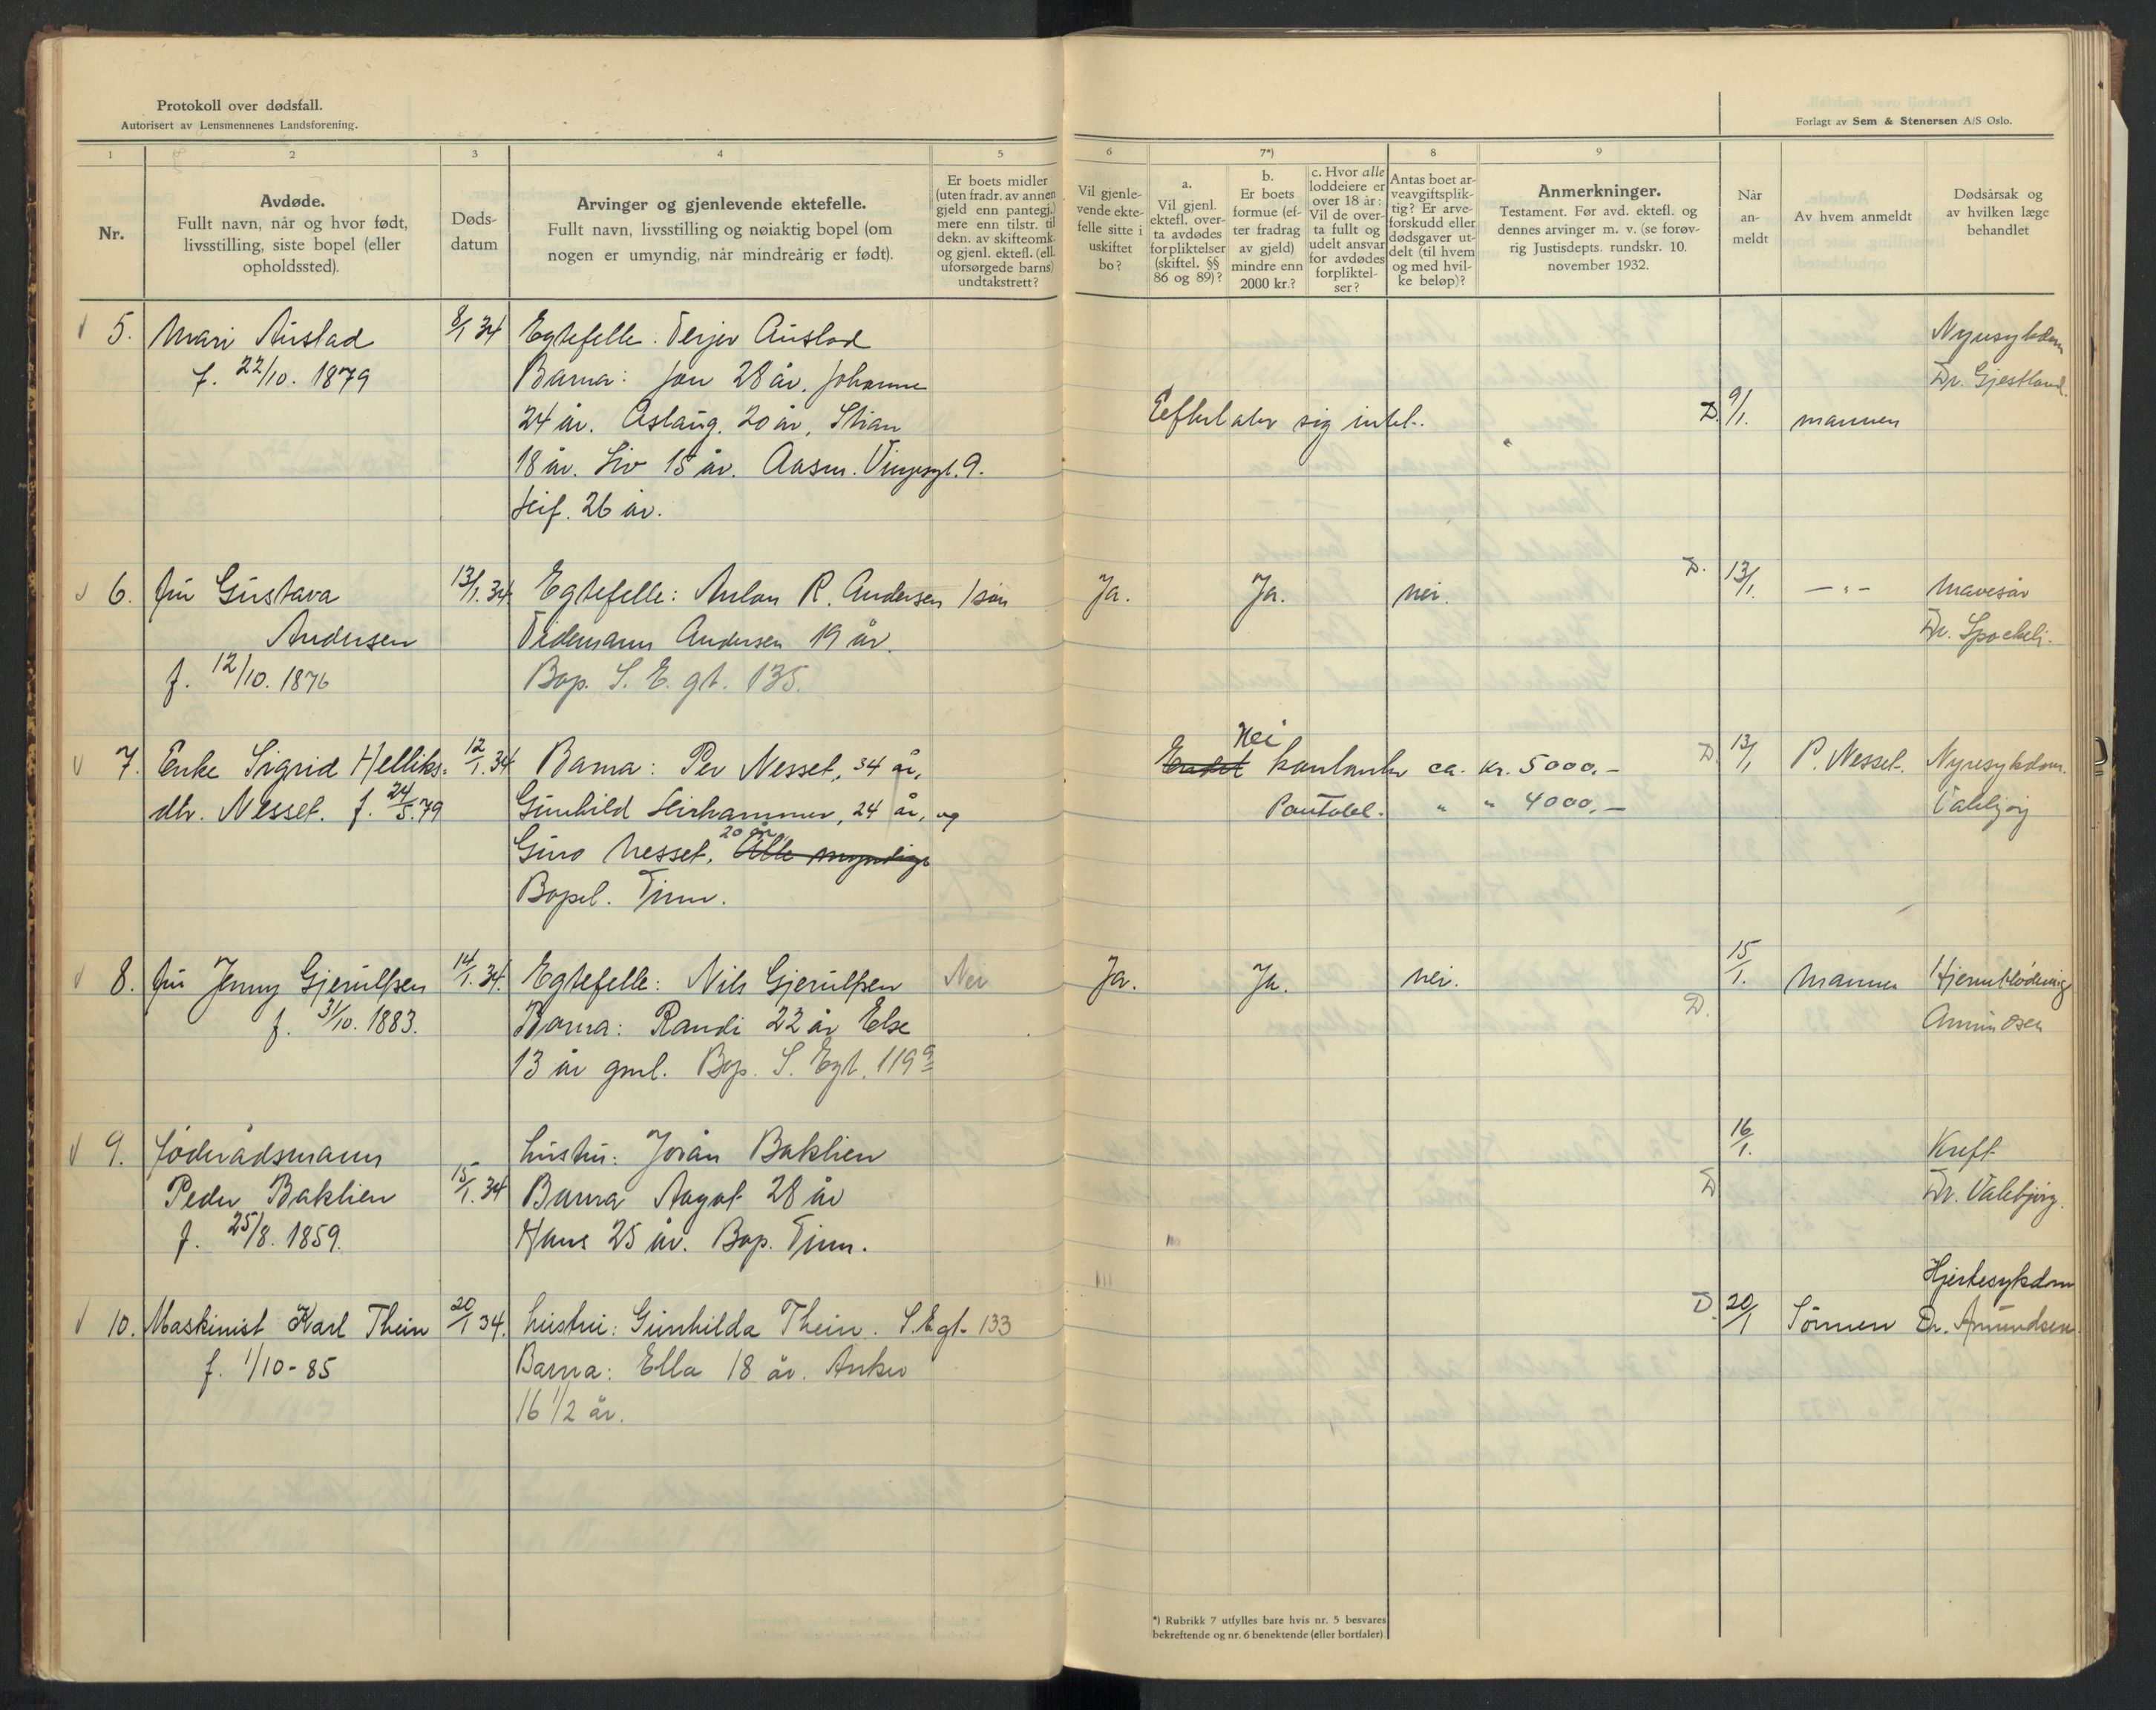 Protokoll over dødsfall.
Autorisert av Lensmennenes Landsforening.
Forlagt av Sem & Stenersen A/S Oslo.
1
2
3
4
5
6
7*)
8
9
Nr.
Avdøde.
Fullt navn, når og hvor født,
livsstilling, siste bopel (eller
opholdssted).
Døds-
datum
Arvinger og gjenlevende ektefelle.
Fullt navn, livsstilling og nøiaktig bopel (om
nogen er umyndig, når mindreårig er født).
Er boets midler
(uten fradr. av annen
gjeld enn pantegj.)
mere enn tilstr. til
dekn. av skifteomk.
og gjenl. ektefl. (ell.
uforsørgede barns)
undtakstrett?
Vil gjenle-
vende ekte-
felle sitte i
uskiftet
bo?
a.
Vil gjenl.
ektefl. over-
ta avdødes
forpliktelser
(skiftel. §§
86 og 89)?
b.
Er boets
formue (ef-
ter fradrag
av gjeld)
mindre enn
2000 kr.?
c. Hvor alle
loddeiere er
over 18 år:
Vil de over-
ta fullt og
udelt ansvar
for avdødes
forpliktel-
ser?
Antas boet ar-
veavgiftsplik-
tig? Er arve-
forskudd eller
dødsgaver ut-
delt (til hvem
og med hvil-
ke beløp)?
Anmerkninger.
Testament. Før avd. ektefl. og
dennes arvinger m. v. (se forøv-
rig Justisdepts. rundskr. 10.
november 1932.
Når
an-
meldt
Av hvem anmeldt
Dødsårsak og
av hvilken læge
behandlet
5. Mari Austad
f. 22/10. 1879
8/1 34
Egtefelle: Terjer Austad
Barna: Jon 28 år. Johanne
24 år. Aslaug. 20 år, Stian
18 år. Liv 15 år. Aasm. Vinjesgt. 9.
Leif. 26 år.
Efterlater sig intet.
D. 9/1. mannen
Nyresykdom
Dr. Gjestland.
6. fru Gustava
Andersen
f. 12/10. 1876
13/1. 34.
Egtefelle: Anton R. Andersen 1 søn
Tidemann Andersen 19 år.
Bop. S. E. gt. 135.
Ja.
Ja.
nei.
D. 13/1.
— " —
Mavesår
Dr.
7. Enke Sigrid Helliks-
dtr. Nesset. f. 24/5.79
12/1. 34
Barna: Per Nesset, 34 år,
Gunhild Leirhammer, 24 år, og
20 år
Guro Nesset, Alle myndige
Bopel. Tinn.
Nei
kontanter ca. kr. 5000.-
Pantobl. " " 4000.-
D. 13/1
P. Nesset.
Nyresykdom.
Valebjørg
8. fru Jenny Gjerulfsen
f. 31/10. 1883.
14/1. 34.
Egtefelle: Nils Gjerulfsen
Barna: Randi 22 år Else
13 år gml. Bop. S. Egt. 119 a
Nei
Ja.
Ja.
nei.
D. 15/1.
Mannen
Hjerneblødning
Amundsen
9. føderådsmann
Peder Baklien
f. 25/8. 1859.
15/1. 34
hustru: Jorån Baklien
Barna Aagot 28 år
Hans 25 år. Bop. Tinn.
D 16/1.
Kreft
Dr. Valebjørg.
10. Maskinist Karl Thein
f. 1/10-85
20/1 34.
hustru: Gunhilda Thein. S.E.gt. 133
Barna: Ella 18 år. Anker
16 1/2 år.
D. 20/1
Sønnen
Hjertesykdom
Dr. Amundsen.
*) Rubrikk 7 utfylles bare hvis nr. 5 besvares
bekreftende og nr. 6 benektende (eller bortfaler).